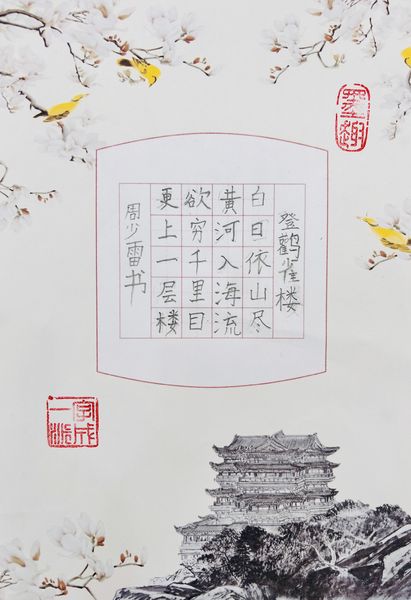 登鹳雀楼
白日依山尽
黄河入海流
欲穷千里目
更上一层楼
周少雷书